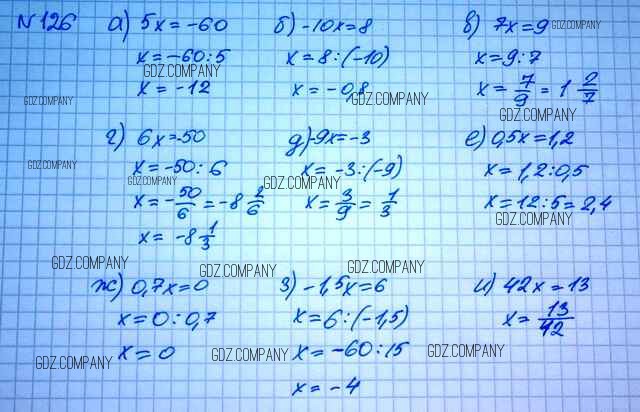 N 126 а) 5x = -60 б) -10x = 8 в) 7x = 9 GDZ.COMPANY
x = -60:5 x = 8:(-10) x = 9:7
GDZ.COMPANY
x = -12 x = -0,8 x = 7/9 = 1 2/7
GDZ.COMPANY GDZ.COMPANY GDZ.COMPANY
г) 6x = -50 д) -9x = -3 е) 0,5x = 1,2
GDZ.COMPANY
x = -50:6 x = -3:(-9) x = 1,2:0,5
GDZ.COMPANY GDZ.COMPANY
x = -50/6 = -8 2/6 x = 3/9 = 1/3 x = 12:5 = 2,4
GDZ.COMPANY
x = -8 1/3
GDZ.COMPANY GDZ.COMPANY GDZ.COMPANY
ж) 0,7x = 0 з) -1,5x = 6 и) 42x = 13
x = 0:0,7 x = 6:(-1,5) x = 13/42
x = 0 x = -60:15
GDZ.COMPANY GDZ.COMPANY GDZ.COMPANY
x = -4